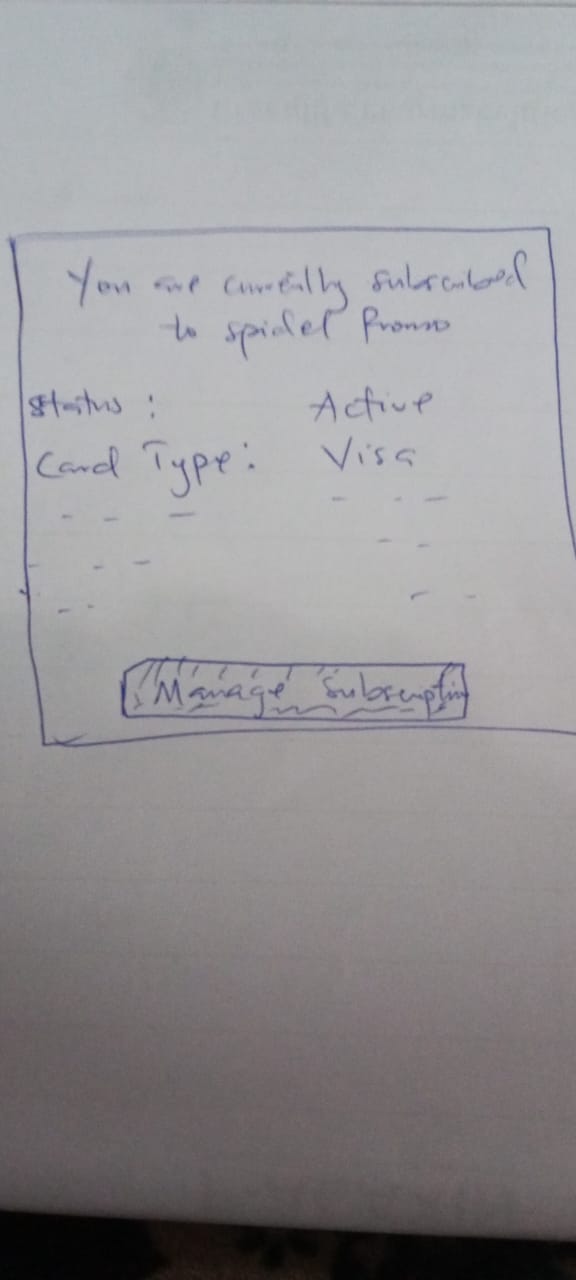 You are currently subscribed
to spidel Promo
Status : Active
Card Type : Visa
Manage Subscription